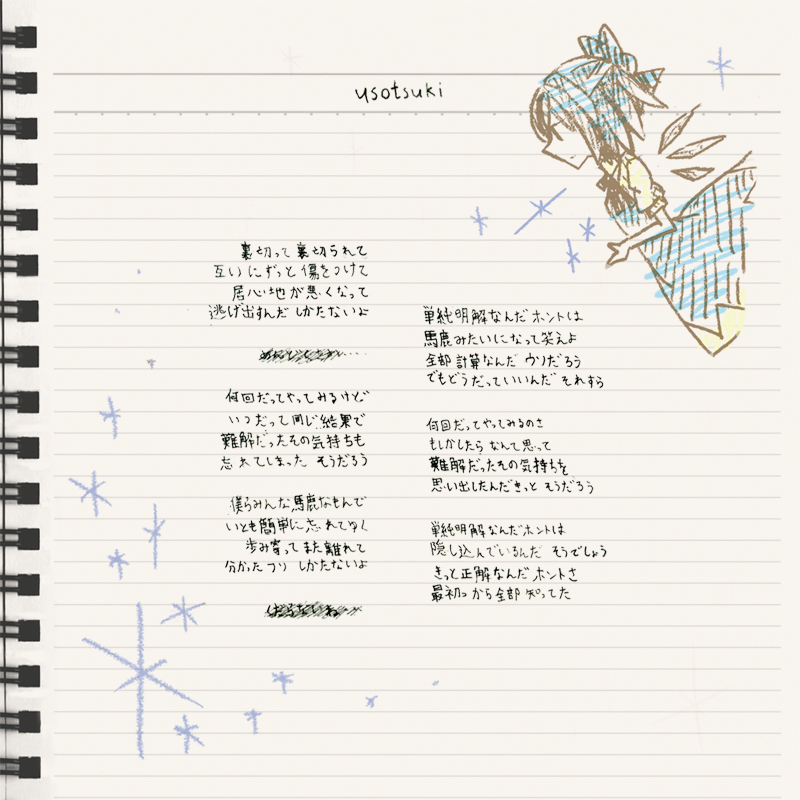 usotsuki
裏切って裏切られて
互いにずっと傷をつけて
居心地が悪くなって
逃げ出すんだ しかたないよ
何回だってやってみるけど
いつだって同じ結果で
難解だったその気持ちも
忘れてしまった そうだろう
僕らみんな馬鹿なもんで
いとも簡単に忘れてゆく
歩み寄ってまた離れて
分かったフリ しかたないよ
単純明解なんだホントは
馬鹿みたいになって笑えよ
全部計算なんだ ウソだろう
でもどうだっていいんだ それすら
何回だってやってみるのさ
もしかしたら なんて思って
難解だったその気持ちを
思い出したんだきっと そうだろう
単純明解なんだホントは
隠し込んでいるんだ そうでしょう
きっと正解なんだ ホントさ
最初っから全部 知ってた